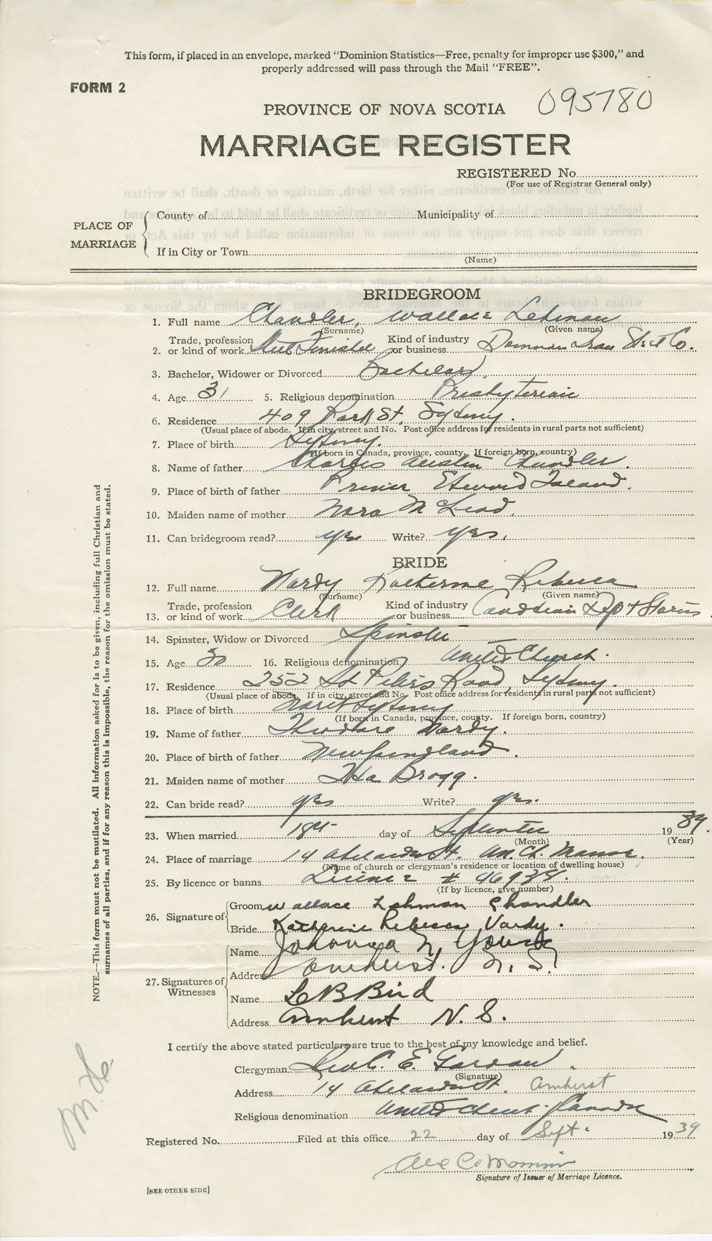 This form, if placed in an envelope, marked "Dominion Statistics—Free, penalty for improper use $300," and
properly addressed will pass through the Mail "FREE".
FORM 2
PROVINCE OF NOVA SCOTIA 095780
MARRIAGE REGISTER
REGISTERED No.
(For use of Registrar General only)
PLACE OF MARRIAGE
County of Municipality of
If in City or Town
(Name)
BRIDEGROOM
1. Full name Chandler, Wallace Lehman
(Surname) (Given name)
Trade, profession Kind of industry
2. or kind of work or business Dominion Iron Steel Co.
3. Bachelor, Widower or Divorced Bachelor
4. Age 31 5. Religious denomination Presbyterian
6. Residence 409 Park St, Sydney.
(Usual place of abode. If in city, street and No. Post office address for residents in rural parts not sufficient)
7. Place of birth Sydney.
(If born in Canada, province, county. If foreign born, country)
8. Name of father Charles Austin Chandler.
9. Place of birth of father Prince Edward Island.
10. Maiden name of mother Nora McLeod.
11. Can bridegroom read? yes Write? yes.
BRIDE
12. Full name Vardy Katherine Rebecca
(Surname) (Given name)
Trade, profession Kind of industry
13. or kind of work Clerk or business Canadian Dept Stores
14. Spinster, Widow or Divorced Spinster
15. Age 30 16. Religious denomination United Church.
17. Residence 252 St Peters Road, Sydney.
(Usual place of abode. If in city, street and No. Post office address for residents in rural parts not sufficient)
18. Place of birth North Sydney
(If born in Canada, province, county. If foreign born, country)
19. Name of father Theodore Vardy.
20. Place of birth of father Newfoundland.
21. Maiden name of mother Bragg.
22. Can bride read? yes Write? yes.
23. When married 18th day of September 1939.
(Month) (Year)
24. Place of marriage 14
(Name of church or clergyman's residence or location of dwelling house)
25. By licence or banns License # 46934.
(If by licence, give number)
26. Signature of
Groom Wallace Lehman Chandler
Bride Katherine Rebecca Vardy.
27. Signatures of Witnesses
Name Johanna N. Young
Address Amherst. N. S.
Name L B Bird
Address Amherst N. S.
I certify the above stated particulars are true to the best of my knowledge and belief.
Clergyman E. Gordon
(Signature)
Address 14 Amherst
Religious denomination United Church Canada
Registered No. Filed at this office 22 day of Sept. 1939
Signature of Issuer of Marriage Licence.
[SEE OTHER SIDE]
NOTE.—This form must not be mutilated. All information asked for is to be given, including full Christian and
surnames of all parties, and if for any reason this is impossible, the reason for the omission must be stated.